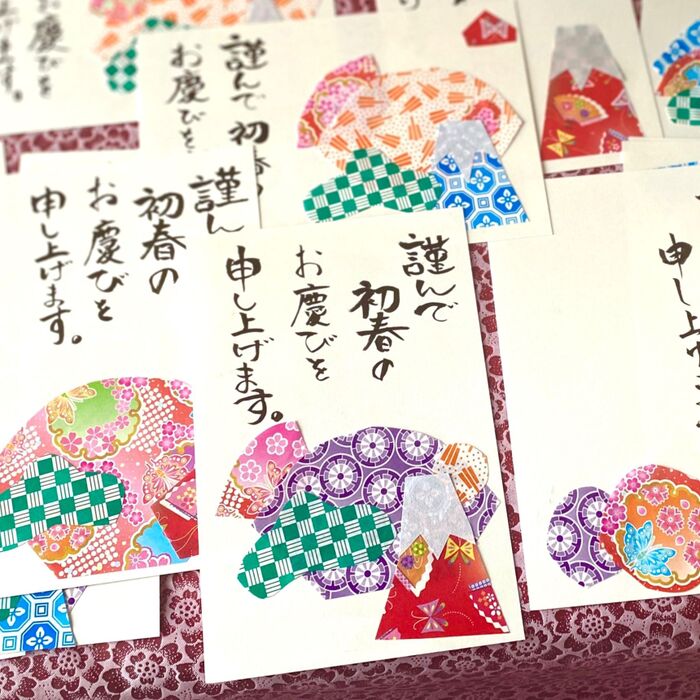 謹んで
初春の
お慶びを
申し上げます。
謹ん
初春の
お慶びを
申し上げます。
謹んで初春の
お慶びを
お慶びを
申し上げ